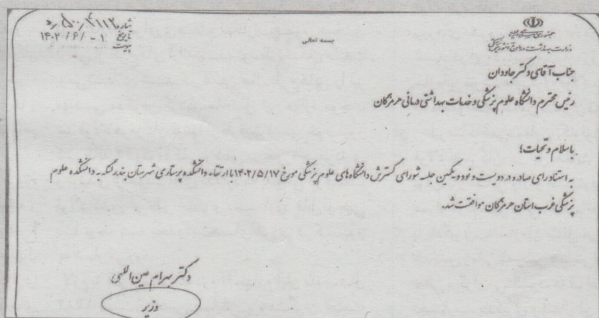 بسمه تعالی
جمهوری اسلامی ایران
وزارت بهداشت، درمان و آموزش پزشکی
شماره
تاریخ ۱۴۰۲/۶/۰۱
پیوست
جناب آقای دکتر جاودان
رئیس محترم دانشگاه علوم پزشکی و خدمات بهداشتی درمانی هرمزگان
با سلام و تحیات؛
به استناد رای صادره در دویست و نود و یکمین جلسه شورای گسترش دانشگاه‌های علوم پزشکی مورخ ۱۴۰۲/۵/۱۷ با ارتقاء دانشکده پرستاری شهرستان بندرلنگه به دانشکده علوم
پزشکی غرب استان هرمزگان موافقت شد.
دکتر بهرام عین اللهی
وزیر